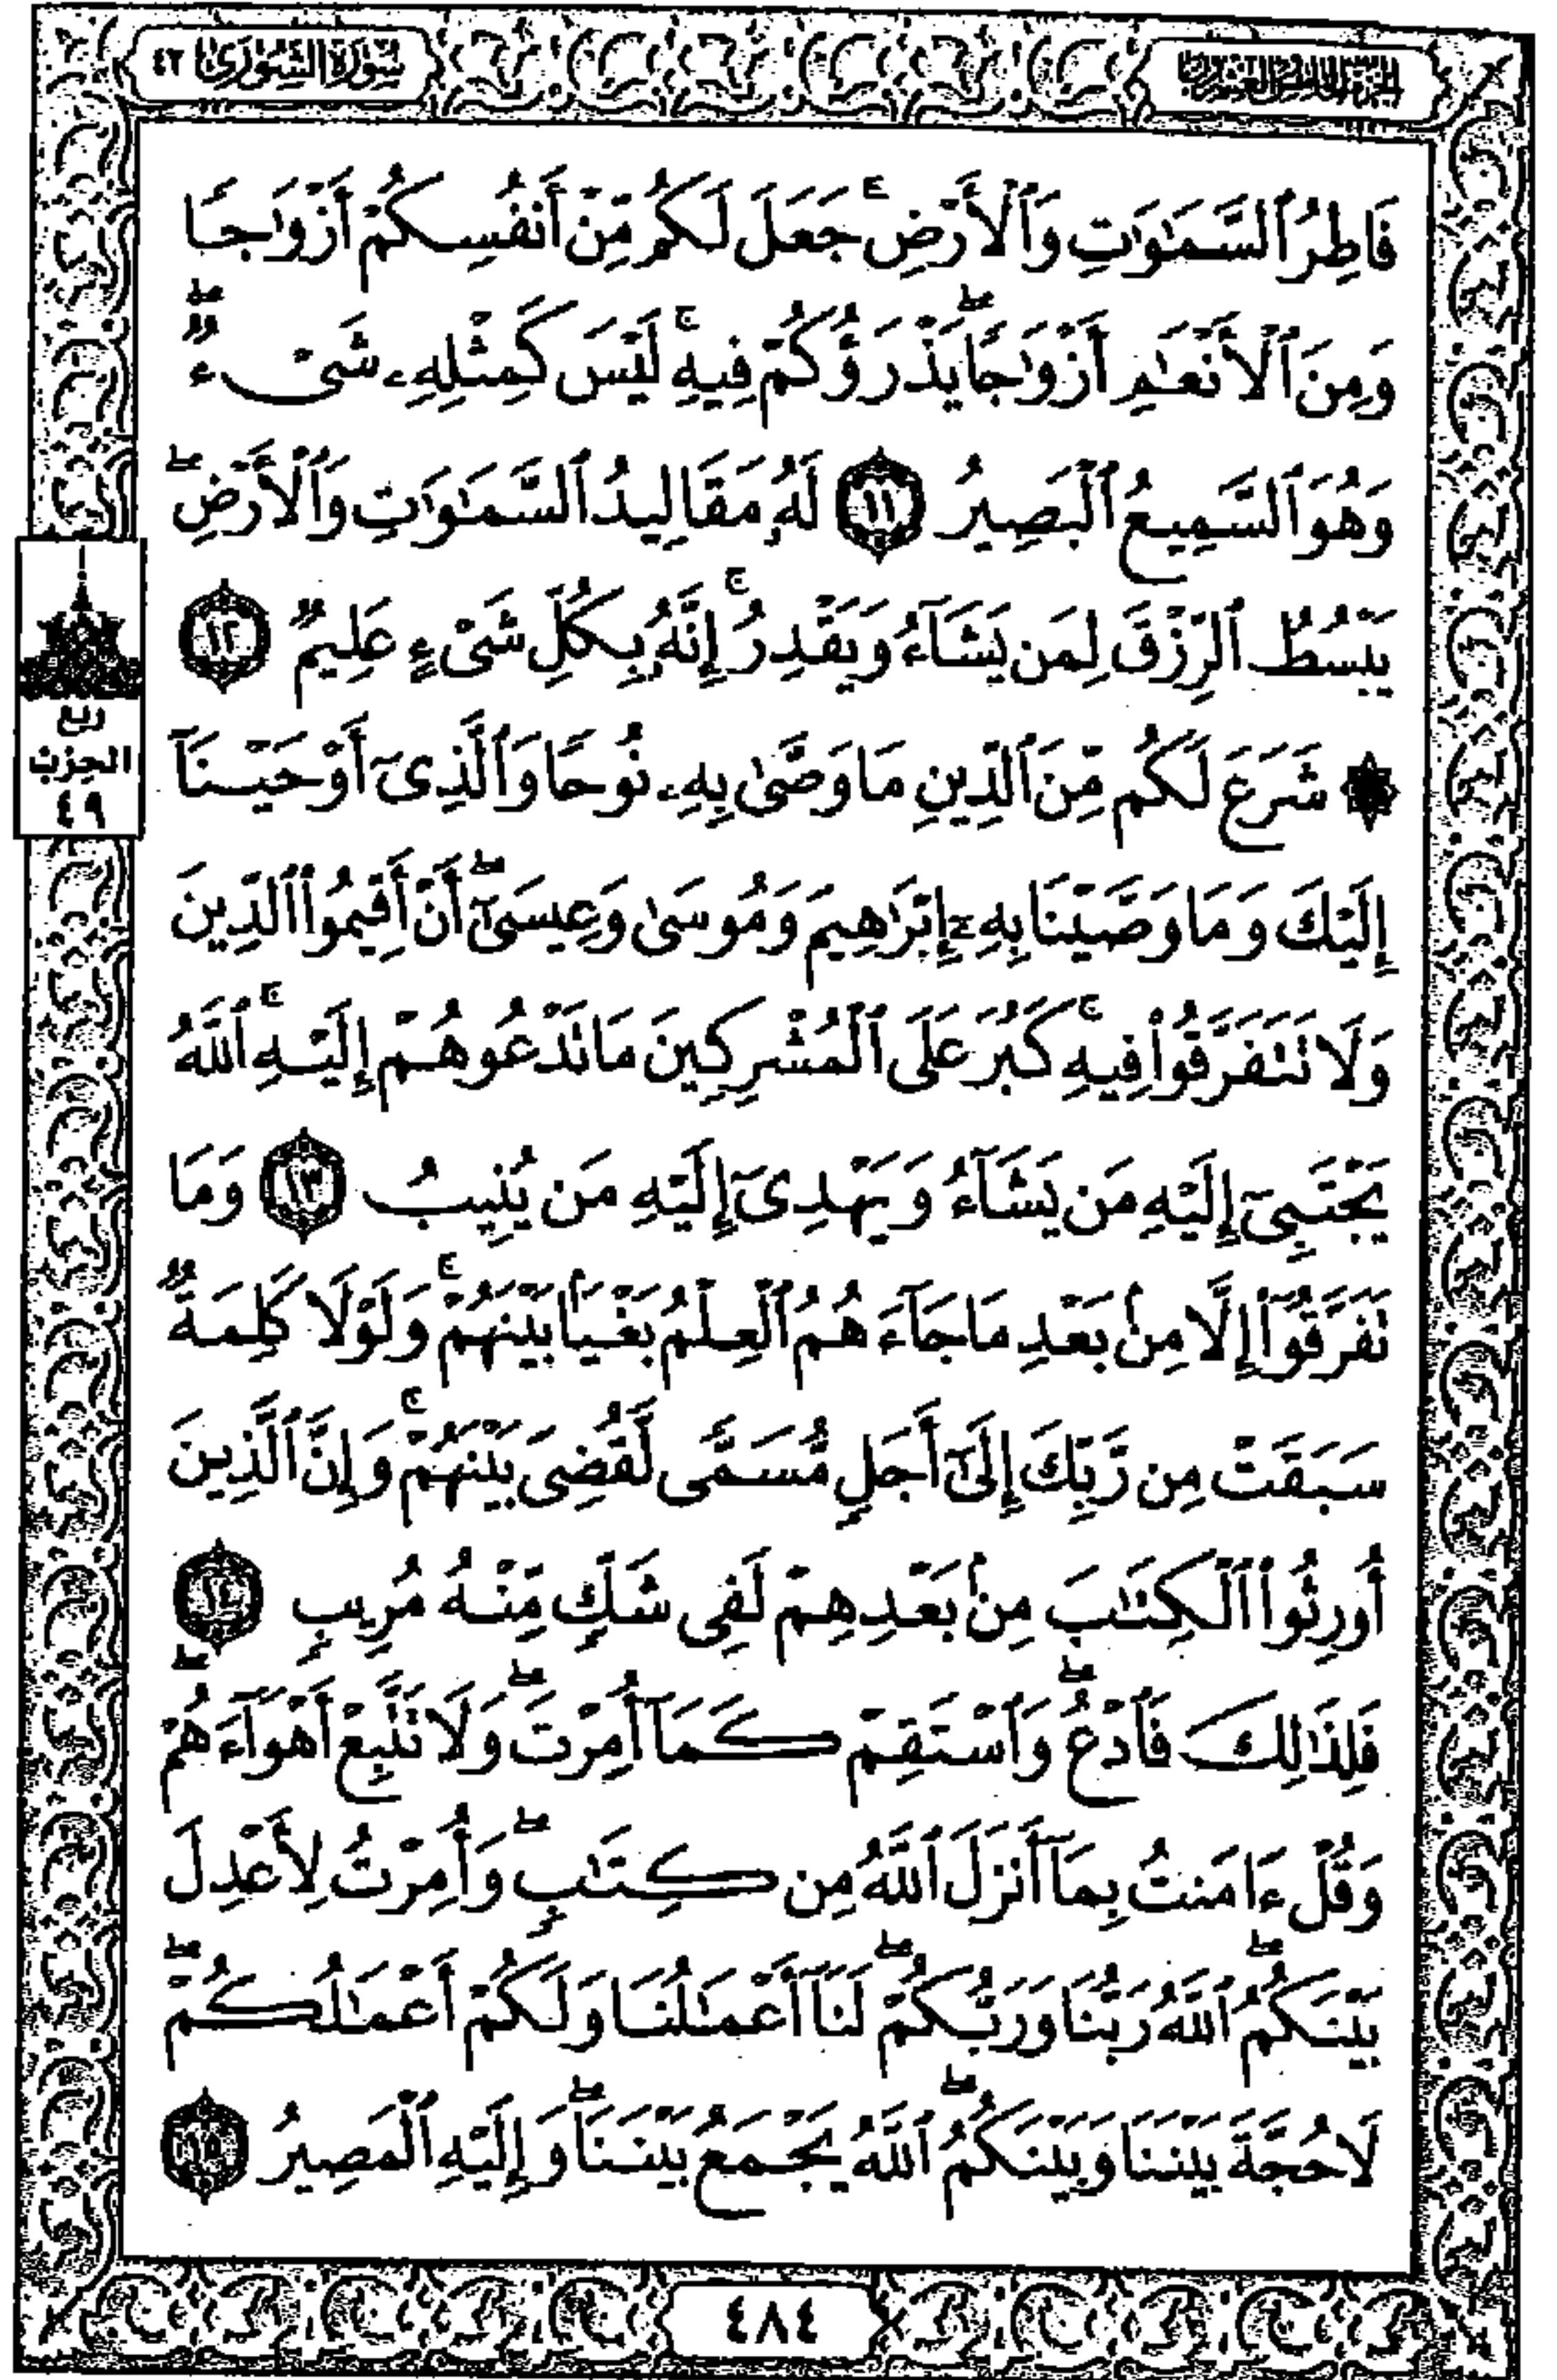 سُورَةُ الشُّورَىٰ ٤٢
الجُزْءُ الخَامِسُ وَالعِشْرُونَ
فَاطِرُ ٱلسَّمَٰوَٰتِ وَٱلْأَرْضِ ۚ جَعَلَ لَكُم مِّنْ أَنفُسِكُمْ أَزْوَٰجًا
وَمِنَ ٱلْأَنْعَٰمِ أَزْوَٰجًا ۖ يَذْرَؤُكُمْ فِيهِ ۚ لَيْسَ كَمِثْلِهِۦ شَىْءٌ ۖ
وَهُوَ ٱلسَّمِيعُ ٱلْبَصِيرُ ١١ لَهُۥ مَقَالِيدُ ٱلسَّمَٰوَٰتِ وَٱلْأَرْضِ ۖ
يَبْسُطُ ٱلرِّزْقَ لِمَن يَشَآءُ وَيَقْدِرُ ۚ إِنَّهُۥ بِكُلِّ شَىْءٍ عَلِيمٌ ١٢
۞ شَرَعَ لَكُم مِّنَ ٱلدِّينِ مَا وَصَّىٰ بِهِۦ نُوحًا وَٱلَّذِىٓ أَوْحَيْنَآ
إِلَيْكَ وَمَا وَصَّيْنَا بِهِۦٓ إِبْرَٰهِيمَ وَمُوسَىٰ وَعِيسَىٰٓ ۖ أَنْ أَقِيمُوا۟ ٱلدِّينَ
وَلَا تَتَفَرَّقُوا۟ فِيهِ ۚ كَبُرَ عَلَى ٱلْمُشْرِكِينَ مَا تَدْعُوهُمْ إِلَيْهِ ۚ ٱللَّهُ
يَجْتَبِىٓ إِلَيْهِ مَن يَشَآءُ وَيَهْدِىٓ إِلَيْهِ مَن يُنِيبُ ١٣ وَمَا
تَفَرَّقُوٓا۟ إِلَّا مِنۢ بَعْدِ مَا جَآءَهُمُ ٱلْعِلْمُ بَغْيًۢا بَيْنَهُمْ ۚ وَلَوْلَا كَلِمَةٌ
سَبَقَتْ مِن رَّبِّكَ إِلَىٰٓ أَجَلٍ مُّسَمًّى لَّقُضِىَ بَيْنَهُمْ ۚ وَإِنَّ ٱلَّذِينَ
أُورِثُوا۟ ٱلْكِتَٰبَ مِنۢ بَعْدِهِمْ لَفِى شَكٍّ مِّنْهُ مُرِيبٍ ١٤
فَلِذَٰلِكَ فَٱدْعُ ۖ وَٱسْتَقِمْ كَمَآ أُمِرْتَ ۖ وَلَا تَتَّبِعْ أَهْوَآءَهُمْ ۖ
وَقُلْ ءَامَنتُ بِمَآ أَنزَلَ ٱللَّهُ مِن كِتَٰبٍ ۖ وَأُمِرْتُ لِأَعْدِلَ
بَيْنَكُمُ ۖ ٱللَّهُ رَبُّنَا وَرَبُّكُمْ ۖ لَنَآ أَعْمَٰلُنَا وَلَكُمْ أَعْمَٰلُكُمْ ۖ
لَا حُجَّةَ بَيْنَنَا وَبَيْنَكُمُ ۖ ٱللَّهُ يَجْمَعُ بَيْنَنَا ۖ وَإِلَيْهِ ٱلْمَصِيرُ ١٥
ربع
الحزب
٤٩
٤٨٤